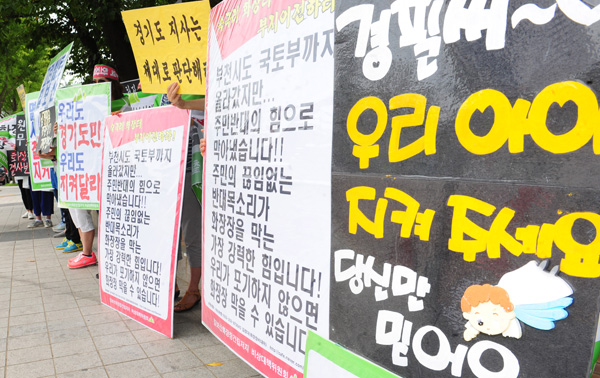 경기도 지사는
제대로 판단해
우리도
경기도민
우리도
지켜달라
부천시도 국토부까지
올라갔지만...
주민반대의 힘으로
막아냈습니다!!
주민의 끊임없는
반대목소리가
화장장을 막는
가장 강력한 힘입니다!
우리가 포기하지 않으면
화장장 막을 수 있습니다
부천시도 국토부까지
올라갔지만...
주민반대의 힘으로
막아냈습니다!!
주민의 끊임없는
반대목소리가
화장장을 막는
가장 강력한 힘입니다!
우리가 포기하지 않으면
화장장 막을 수 있습니다
경필씨~
우리 아이
지켜 주세요
당신만
믿어요